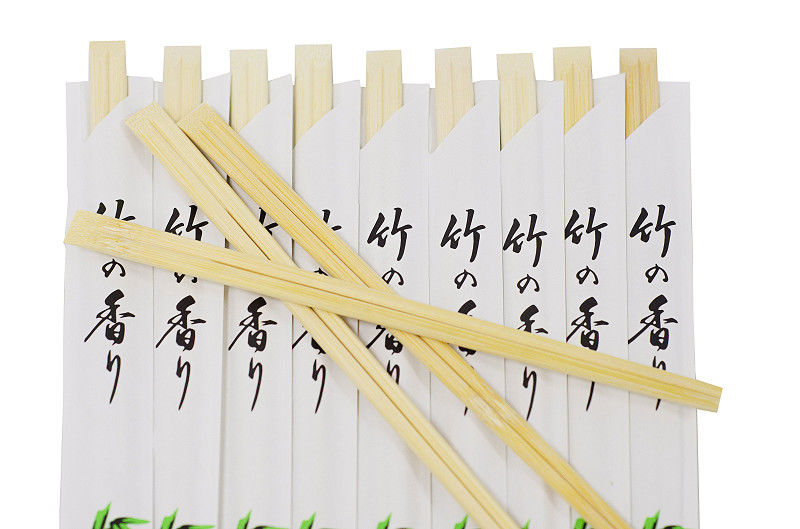 竹の香り
竹の香り
竹の香り
竹の香り
竹の香り
竹の香り
竹の香り
竹の香り
竹の香り